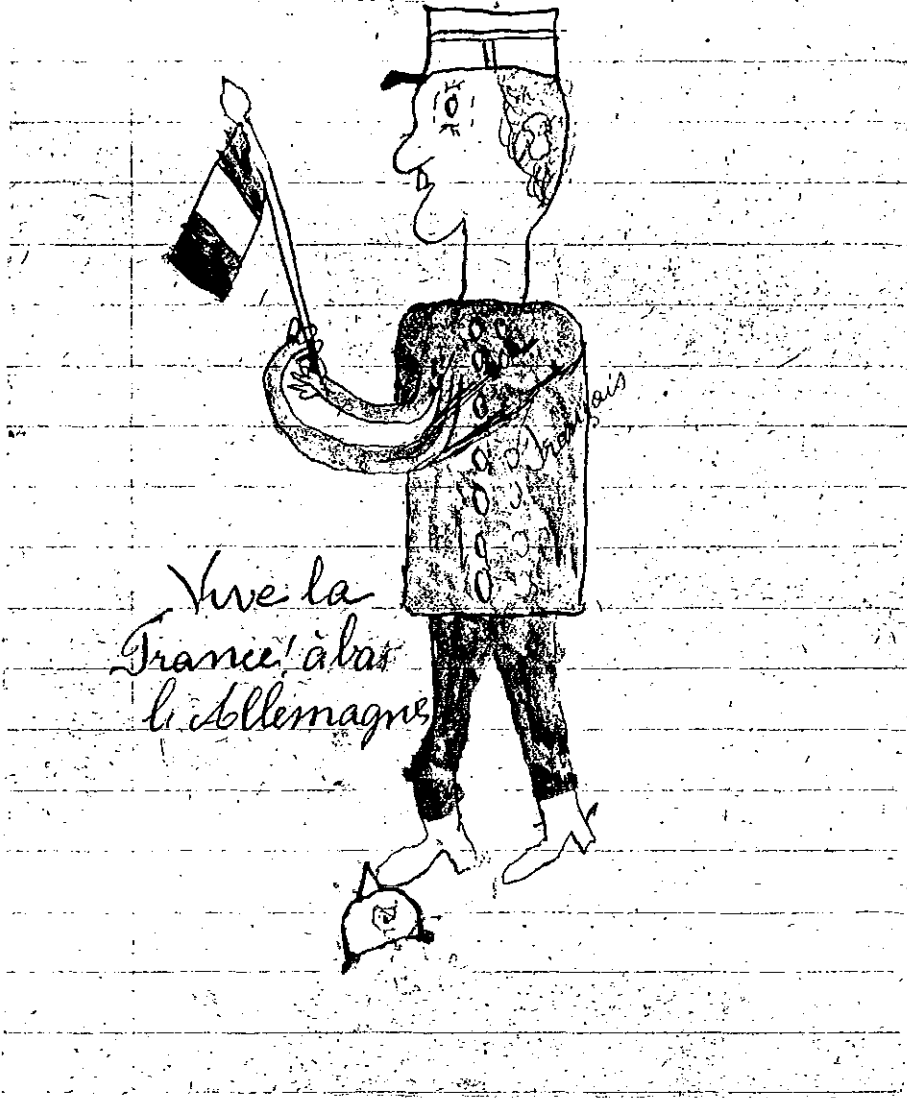 Français
Vive la
France! à bas
l'Allemagne